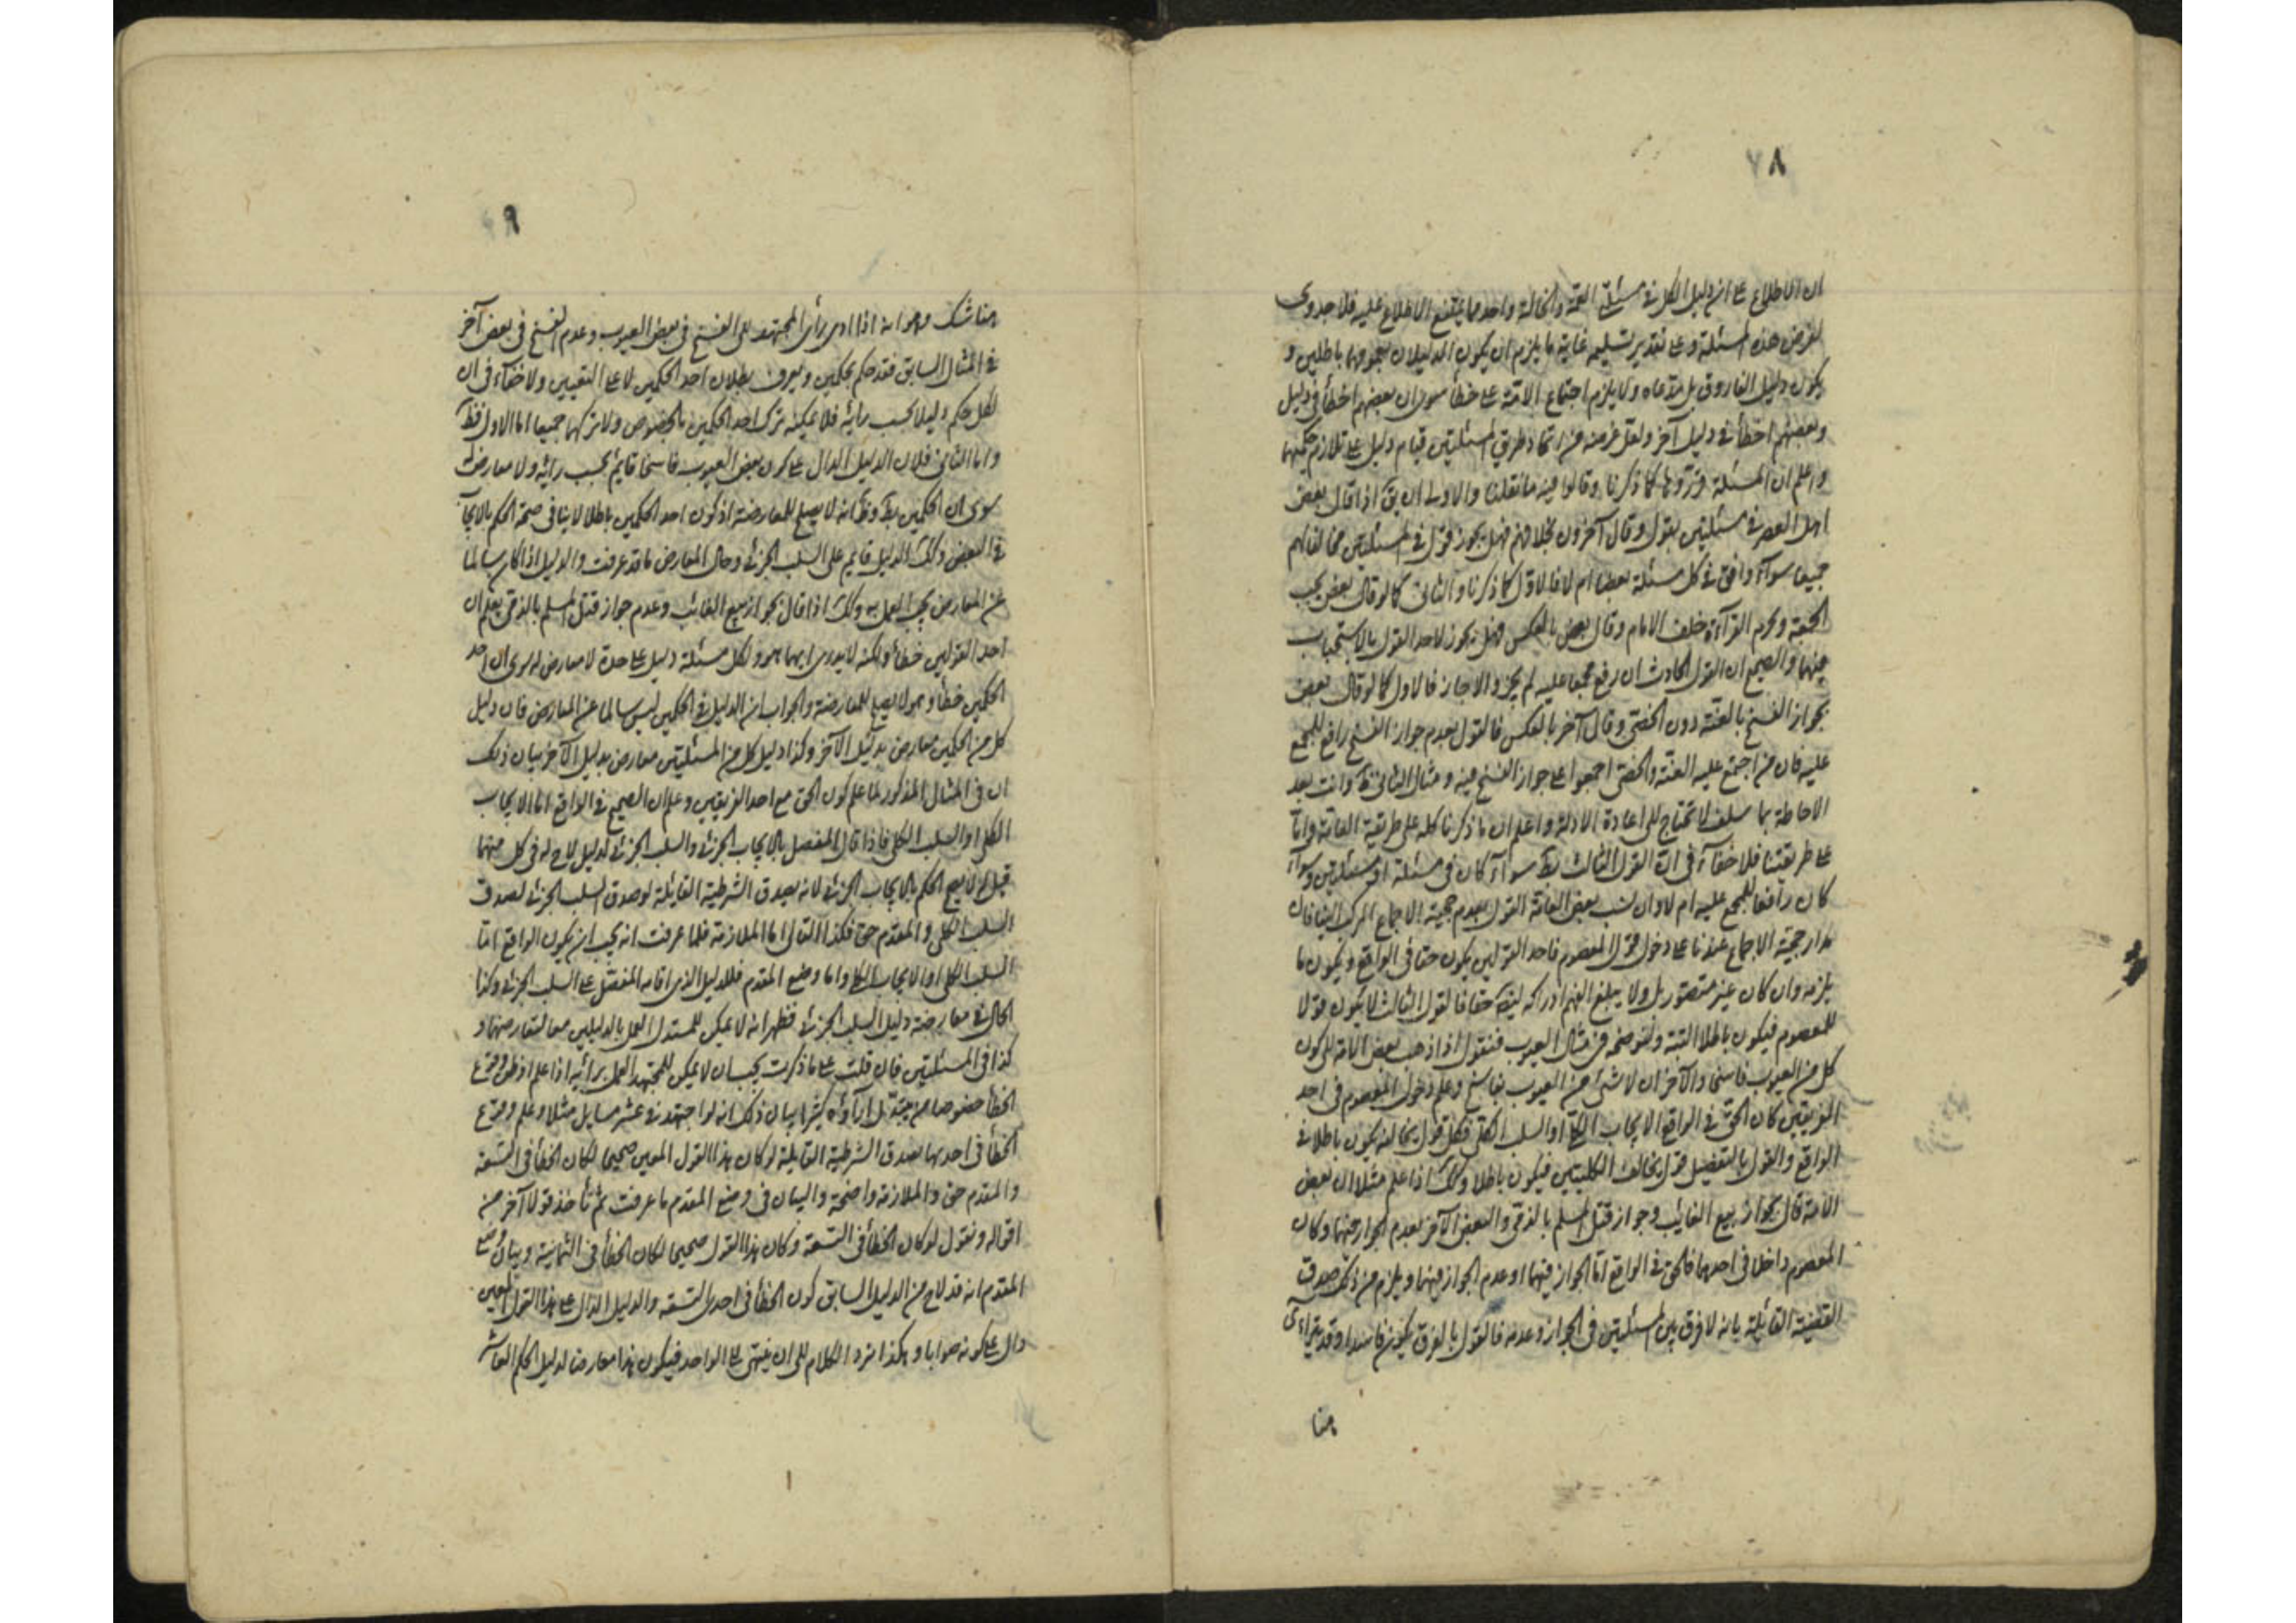 ٨
ان الاطلاع على ان دليل الكل في مسئلة العمة والخالة واحد مما يمتنع الاطلاع عليه فلا جدوى
لفرض هذه المسئلة وعلى تقدير تسليمه غاية ما يلزم ان يكون الدليلان مجموعهما باطلين و
يكون دليل الفاروق بل مدعاه ولا يلزم اجتماع الامة على خطأ سوى ان بعضهم اخطأ في دليل
وبعضهم اخطأ في دليل آخر ولعل غرضه من اتحاد طريق المسئلتين قيام دليل على تلازم حكمهما
واعلم ان المسئلة كما ذكرنا وقالوا فيه ما نقلنا والاولى ان يق اذا قال بعض
اهل العصر في مسئلتين بقول وقال آخرون بخلافهم فهل يجوز قول في المسئلتين مخالفا لهم
جميعا سواء وافق في كل مسئلة بعضا ام لا فالاول كما ذكرنا والثاني كما لو قال بعض يجب
الجمعة ويحرم القرآءة خلف الامام وقال بعض بالعكس فهل يجوز لاحد القول بالاستحباب
فيهما والصحيح ان القول الحادث ان رفع مجمعا عليه لم يجز والا جاز فالاول كما لو قال بعض
بجواز الفسخ بالعنة دون الخصى وقال آخر بالعكس فالقول بعدم جواز الفسخ رافع للمجمع
عليه فان من اجتمع عليه العنة والخصى اجمعوا على جواز الفسخ فيه ومثال الثاني وانت بعد
الاحاطة بما سلف لا تحتاج الى اعادة الادلة واعلم ان ما ذكرنا كله على طريقة العامة واما
على طريقتنا فلا خفآء في ان القول الثالث بط سواء كان في مسئلة او مسئلتين وسواء
كان رافعا للمجمع عليه ام لا وان نسب بعض العامة القول بعدم حجية الاجماع المركب الينا فان
مدار حجية الاجماع عندنا على دخول قول المعصوم فاحد القولين يكون حقا في الواقع ويكون ما
يلزمه وان كان غير متصور بل ولا يبلغ الفهم ادراكه ايضا حقا فالقول الثالث لا يكون قولا
للمعصوم فيكون باطلا البتة ولنوضحه في مثال العيوب فنقول اذا ذهب بعض الامة الى كون
كل من العيوب فاسخا والآخر ان لا شئ من العيوب بفاسخ وعلم دخول المعصوم في احد
الفريقين كان الحق في الواقع الايجاب الكلي او السلب الكلي فكل قول يخالفه يكون باطلا في
الواقع والقول بالتفصيل قول يخالف الكليتين فيكون باطلا وكك اذا علم مثلا ان بعض
الامة قال بجواز بيع الغائب وجواز قتل المسلم بالذمي والبعض الآخر بعدم الجواز فيهما وكان
المعصوم داخلا في احدهما فالحق في الواقع اما الجواز فيهما او عدم الجواز فيهما ويلزم من ذلك صدق
القضية القائلة بانه لا فرق بين المسئلتين في الجواز وعدمه فالقول بالفرق يكون فاسدا وقد يتراءى
هنا
٩
هنا شك وهو انه اذا ادى رأى المجتهد الى الفسخ في بعض العيوب وعدم الفسخ في بعض آخر
في المثال السابق فقد حكم بحكمين ويعرف بطلان احد الحكمين لا على التعيين ولا خفآء في ان
لكل حكم دليلا بحسب رأيه فلا يمكنه ترك احد الحكمين بالخصوص ولا تركهما جميعا اما الاول فظ
واما الثاني فلان الدليل الدال على كون بعض العيوب فاسخا قايم بحسب رأيه ولا معارض له
سوى ان احد الحكمين بط وظ انه لا يصلح للمعارضة اذ كون احد الحكمين باطلا لا ينافي صحة الحكم بالايجاب
في البعض وكك الدليل قايم على السلب الجزئي وحال المعارض ما قد عرفت والدليل اذا كان سالما
عن المعارض يجب العمل به وكك اذا قال بجواز بيع الغائب وعدم جواز قتل المسلم بالذمي يعلم ان
احد القولين خطأ ولكنه لا يدرى ايهما هو ولكل مسئلة دليل على حدة لا معارض له سوى ان احد
الحكمين خطأ وهو لا يصلح للمعارضة والجواب ان الدليل في الحكمين ليس سالما عن المعارض فان دليل
كل من الحكمين معارض بدليل الآخر وكذا دليل كل من المسئلتين معارض بدليل الآخر بيان ذلك
ان في المثال المذكور لما علم كون الحق مع احد الفريقين وعلم ان الصحيح في الواقع اما الايجاب
الكلي او السلب الكلي فاذا قال المفصل بالايجاب الجزئي والسلب الجزئي لدليل لاح له في كل منهما
قيل له لا يصح الحكم بالايجاب الجزئي لانه يصدق الشرطية القائلة لو صدق السلب الجزئي لصدق
السلب الكلي والمقدم حق فكذا التالي اما الملازمة فلما عرفت انه يجب ان يكون الواقع اما
السلب الكلي او الايجاب الكلي واما وضع المقدم فللدليل الذي اقامه المفصل على السلب الجزئي وكذا
الحال في معارضة دليل السلب الجزئي فظهر انه لا يمكن للمستدل العمل بالدليلين معا لتعارضهما و
كذا في المسئلتين فان قلت على ما ذكرت يجب ان لا يمكن للمجتهد العمل برأيه اذا علم او ظن وقوع
الخطأ خصوصا من يتبدل آرآؤه كثيرا بيان ذلك انه لو اجتهد في عشر مسايل مثلا وعلم وقوع
الخطأ في احديها لصدق الشرطية القايلة لو كان هذا القول المعين صحيحا لكان الخطأ في التسعة
والمقدم حق والملازمة واضحة والبيان في وضع المقدم ما عرفت ثم تأخذ قولا آخر من
اقواله ونقول لو كان الخطأ في التسعة وكان هذا القول صحيحا لكان الخطأ في الثمانية وبيان وضع
المقدم انه قد لاح من الدليل السابق كون الخطأ في احدى التسعة والدليل الدال على هذا القول المعين
دال على كونه صوابا وهكذا نردد الكلام الى ان ينتهى الى الواحد فيكون هذا معارضا لدليل الحكم العاشر